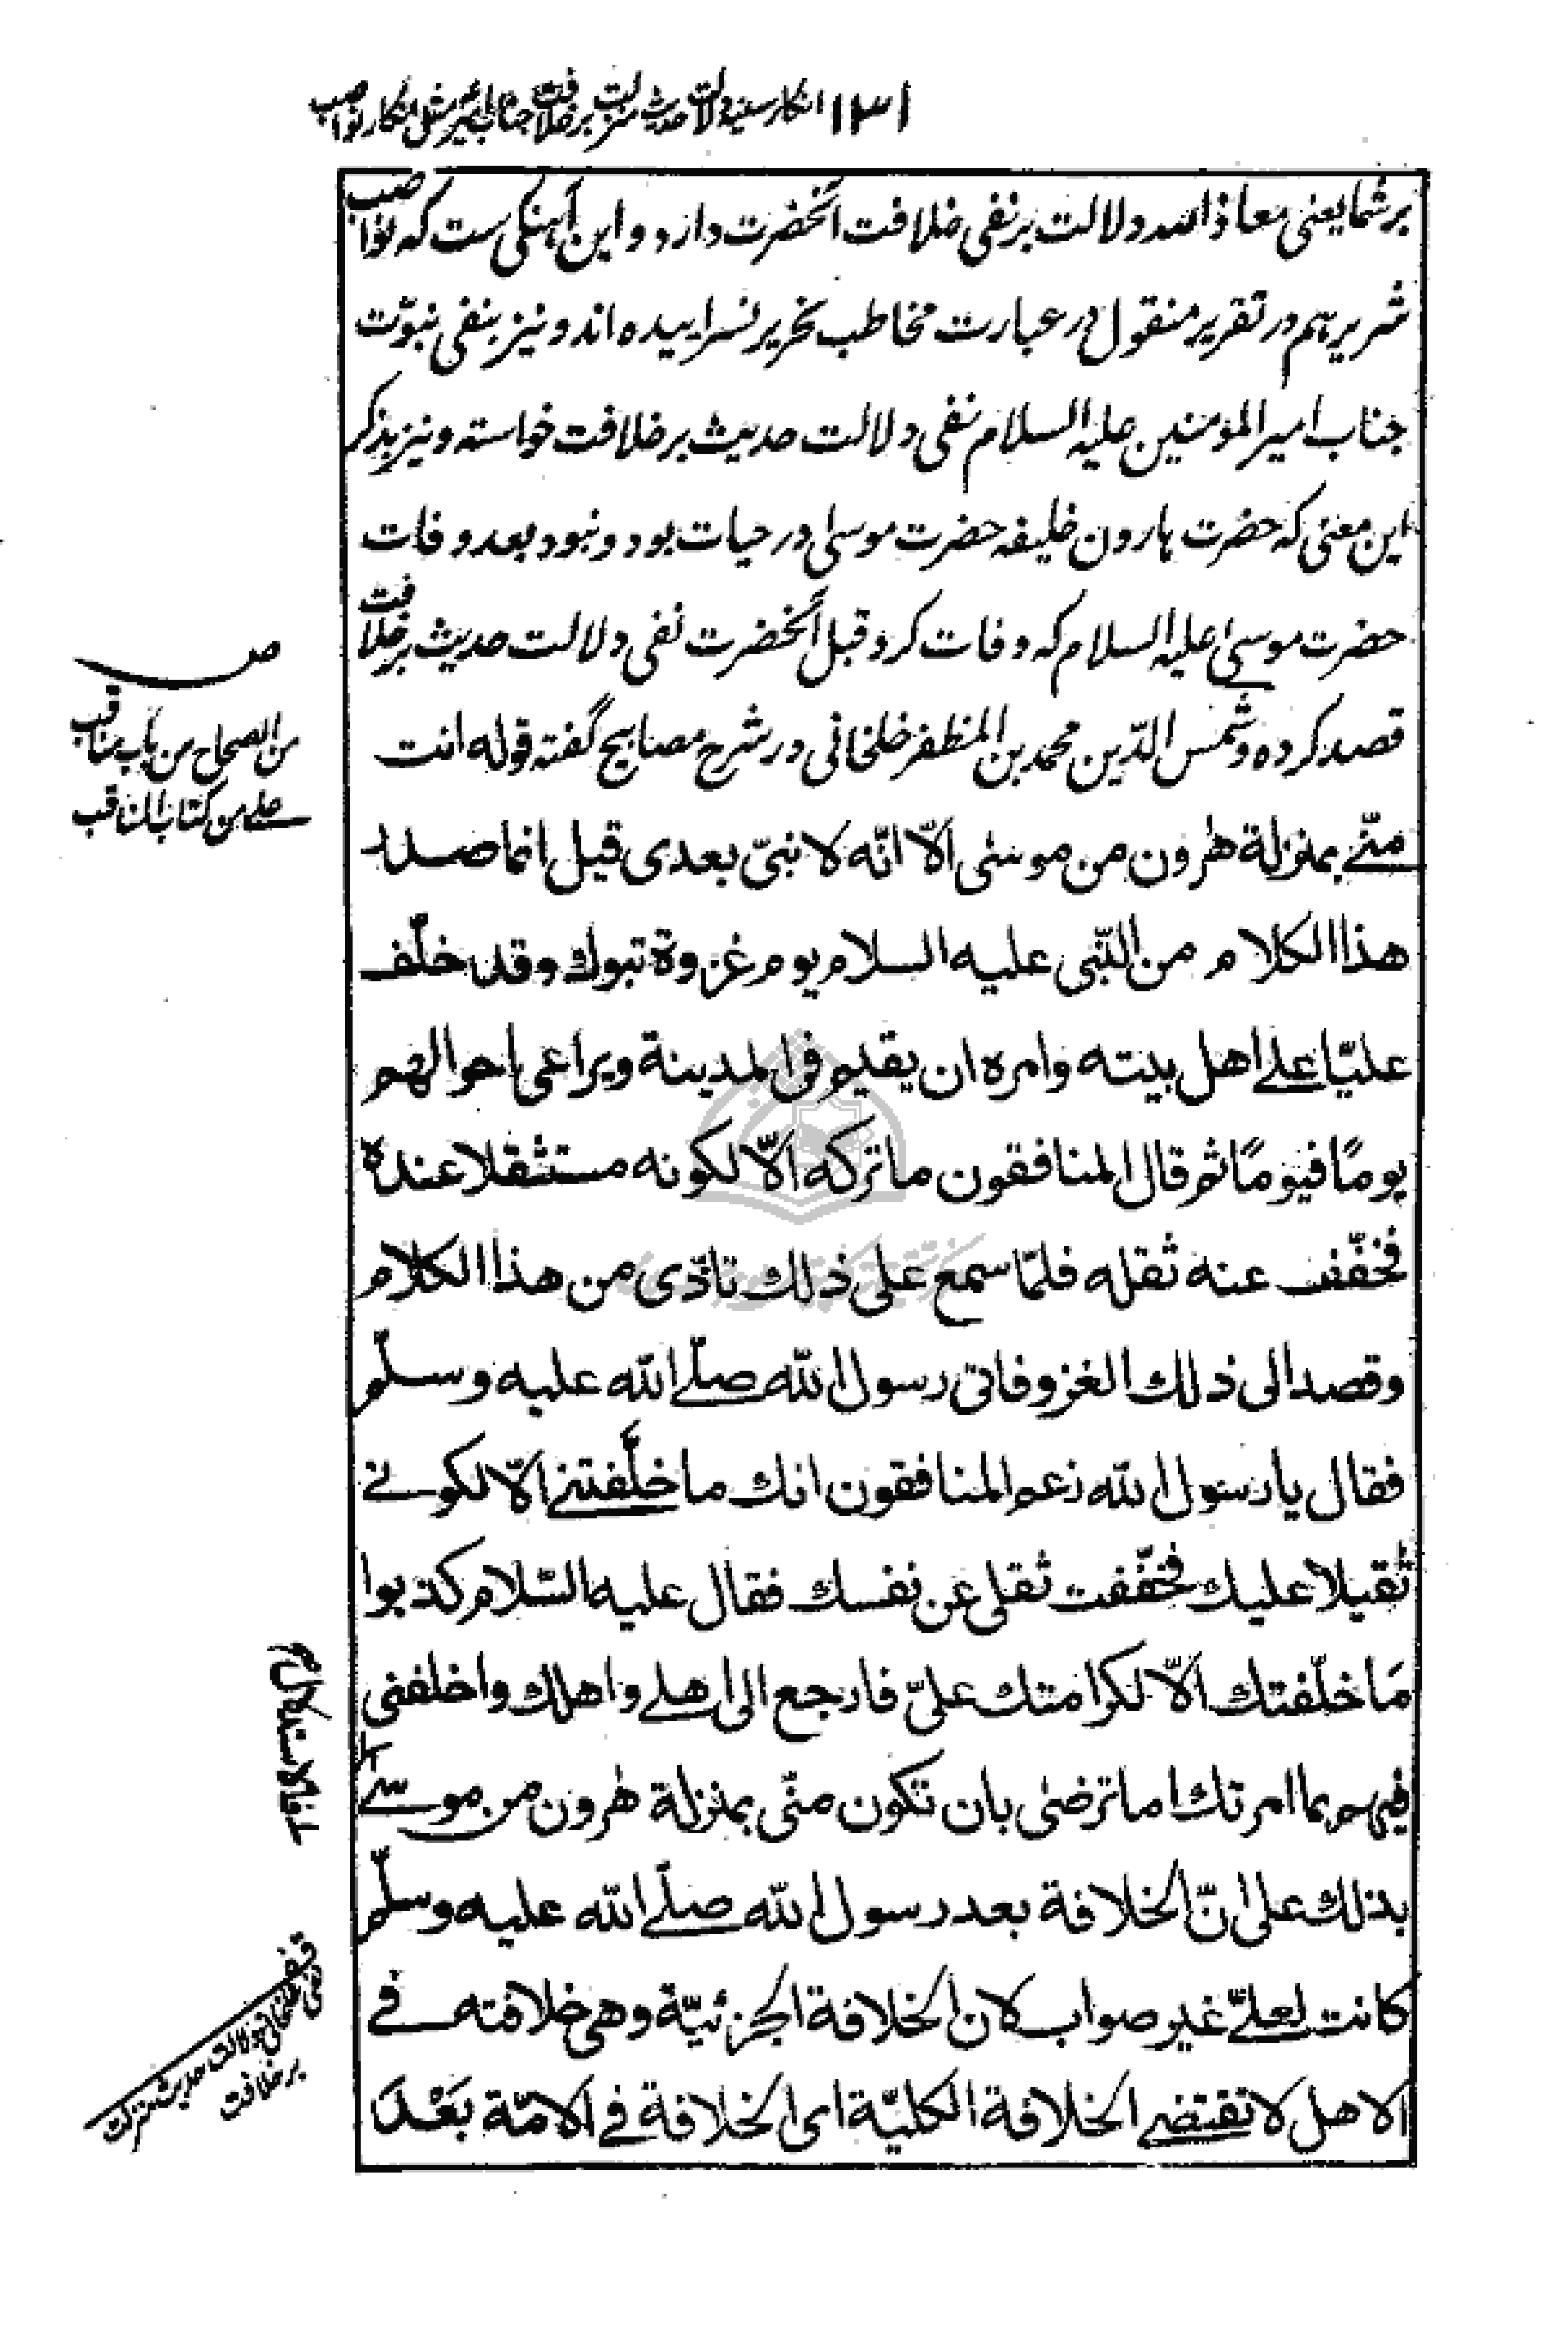 ۱۳۱ انکار سنیه دلالت حدیث منزلت بر خلافت جناب امیر مثل انکار نواصب
بر شما یعنی معاذ الله دلالت بر نفی خلافت آنحضرت دارد و این آهنگی ست که نواصب
شریر هم در تقریر منقول در عبارت مخاطب نحریر نسراییده اند و نیز بنفی نبوّت
جناب امیر المؤمنین علیه السلام نفی دلالت حدیث بر خلافت خواسته و نیز بذکر
این معنی که حضرت هارون خلیفه حضرت موسی در حیات بود و نبود بعد وفات
حضرت موسی علیه السلام که وفات کرد قبل آنحضرت نفی دلالت حدیث بر خلافت
قصد کرده و شمس الدّین محمد بن المظفر خلخانی در شرح مصابیح گفته قوله انت
منّے بمنزلة هٰرون من موسٰی الّا انّه لا نبیّ بعدی قیل انما صدر
هذا الکلام من النّبی علیه السلام یوم غزوة تبوك وقد خلّف
علیّا علے اهل بیته وامره ان یقیم فی المدینة ویراعی احوالهم
یومًا فیومًا ثم قال المنافقون ما ترکه الّا لکونه مستثقلا عنده
فخفّف عنه ثقله فلمّا سمع علی ذلك تاذّی من هذا الکلام
وقصد الی ذلك الغزو فاتی رسول الله صلّے الله علیه وسلّم
فقال یا رسول الله زعم المنافقون انك ما خلّفتنے الّا لکونے
ثقیلا علیك فخفّفت ثقلی عن نفسك فقال علیه السّلام کذبوا
مَا خلّفتك الّا لکرامتك علیّ فارجع الی اهلے واهلك واخلفنی
فیهم بما امرتك اما ترضٰی بان تکون منّی بمنزلة هٰرون من موسٰے
بذلك علی انّ الخلافة بعد رسول الله صلّے الله علیه وسلّم
کانت لعلےّ غیر صواب لان الخلافة الجزئیّة وهی خلافته فے
الاهل لا تقتضے الخلافة الکلیّة ای الخلافة فے الامّة بَعْدَ
ص
من الصحاح من باب مناقب
علے من کتاب المناقب
فالاستدلال
نفی خلخانی دلالت حدیث منزلت
بر خلافت